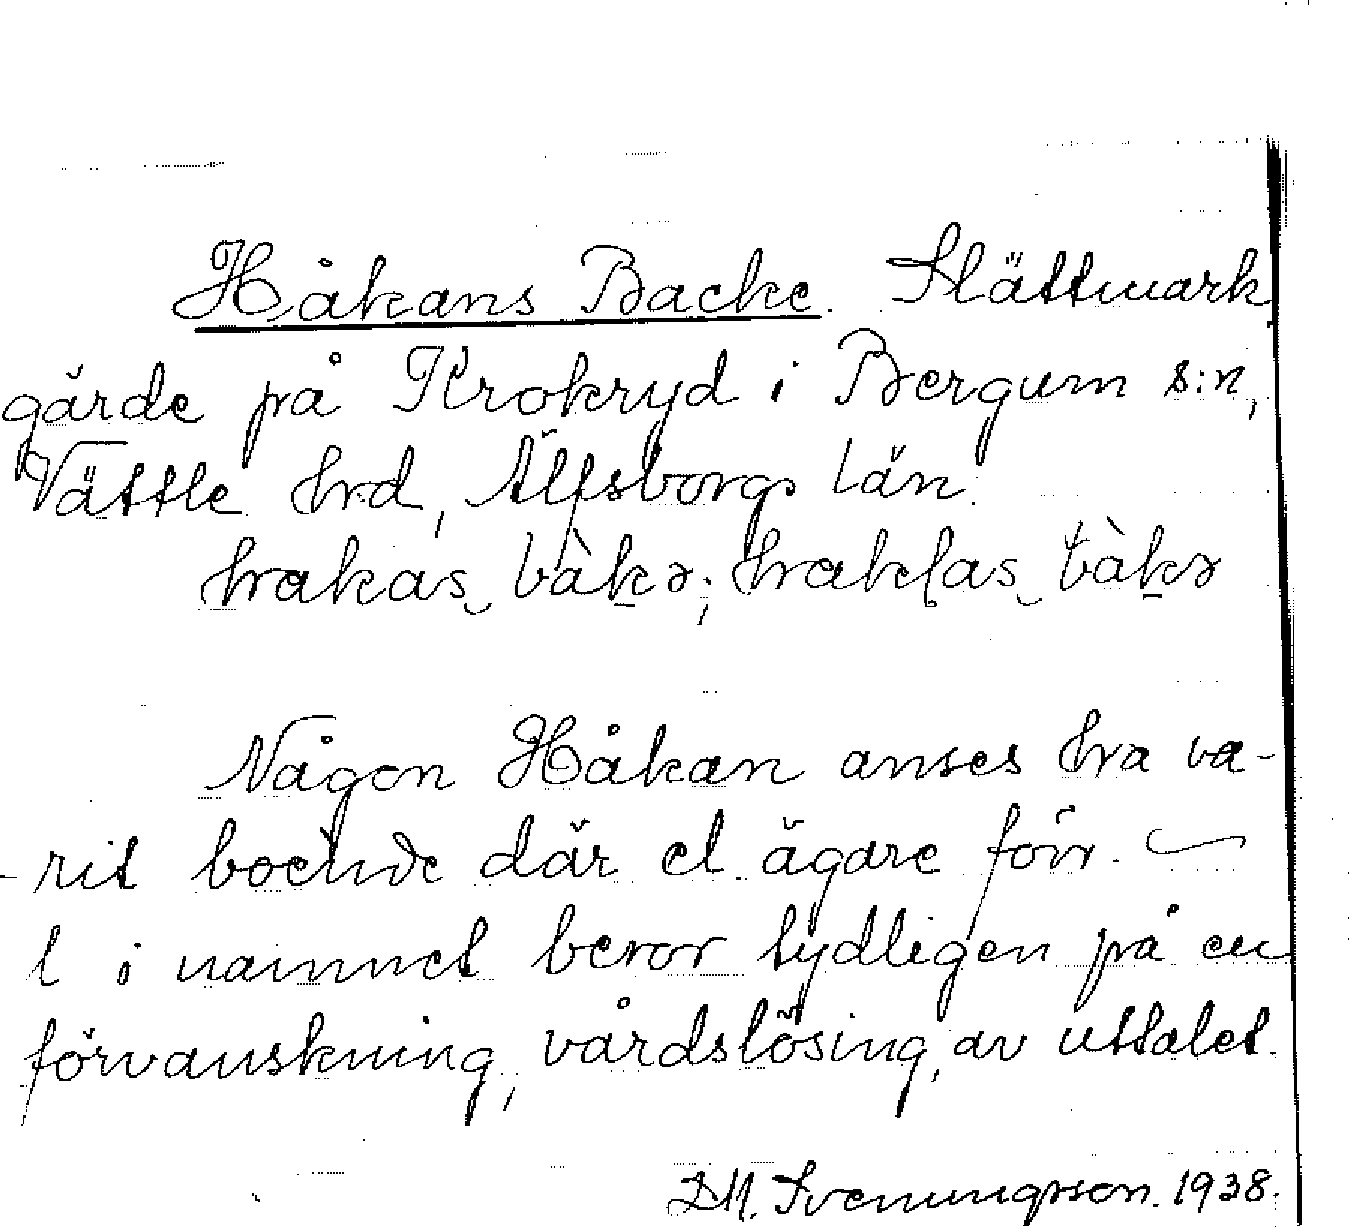 Håkans Backe. Slättmark
gärde på Krokryd i Bergum s:n,
Vättle hrd, Älfsborgs län.
hakas bàkə; haklas bàkə
Någon Håkan anses ha va-
rit boende där el. ägare förr. —
l i namnet beror tydligen på en
förvanskning, vårdslösing, av uttalet.
D.M. Svenungsson. 1938.